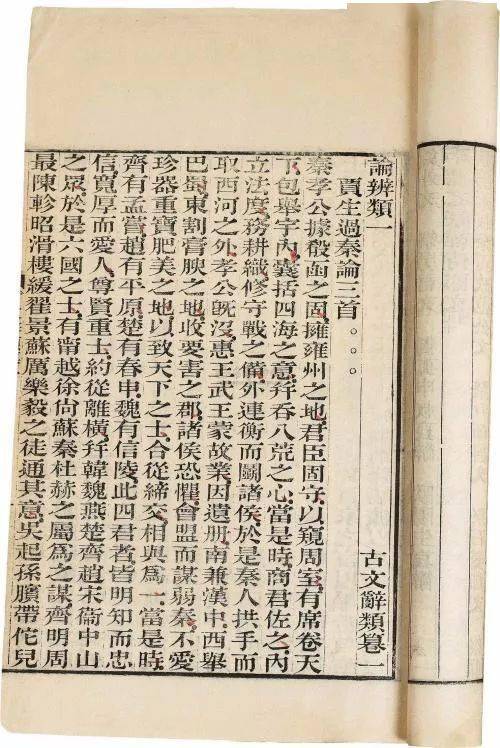 論辨類一　古文辭類篹一
賈生過秦論三首。。。
秦孝公據殽函之固擁雍州之地君臣固守以窺周室有席卷天
下包舉宇內囊括四海之意幷吞八荒之心當是時商君佐之內
立法度務耕織修守戰之備外連衡而鬭諸侯於是秦人拱手而
取西河之外孝公旣沒惠王武王蒙故業因遺册南兼漢中西舉
巴蜀東割膏腴之地收要害之郡諸侯恐懼會盟而謀弱秦不愛
珍器重寶肥美之地以致天下之士合從締交相與爲一當是時
齊有孟嘗趙有平原楚有春申魏有信陵此四君者皆明知而忠
信寬厚而愛人尊賢重士約從離橫幷韓魏燕楚齊趙宋衞中山
之眾於是六國之士有甯越徐尙蘇秦杜赫之屬爲之謀齊明周
最陳軫昭滑樓緩翟景蘇厲樂毅之徒通其意吳起孫臏帶佗兒